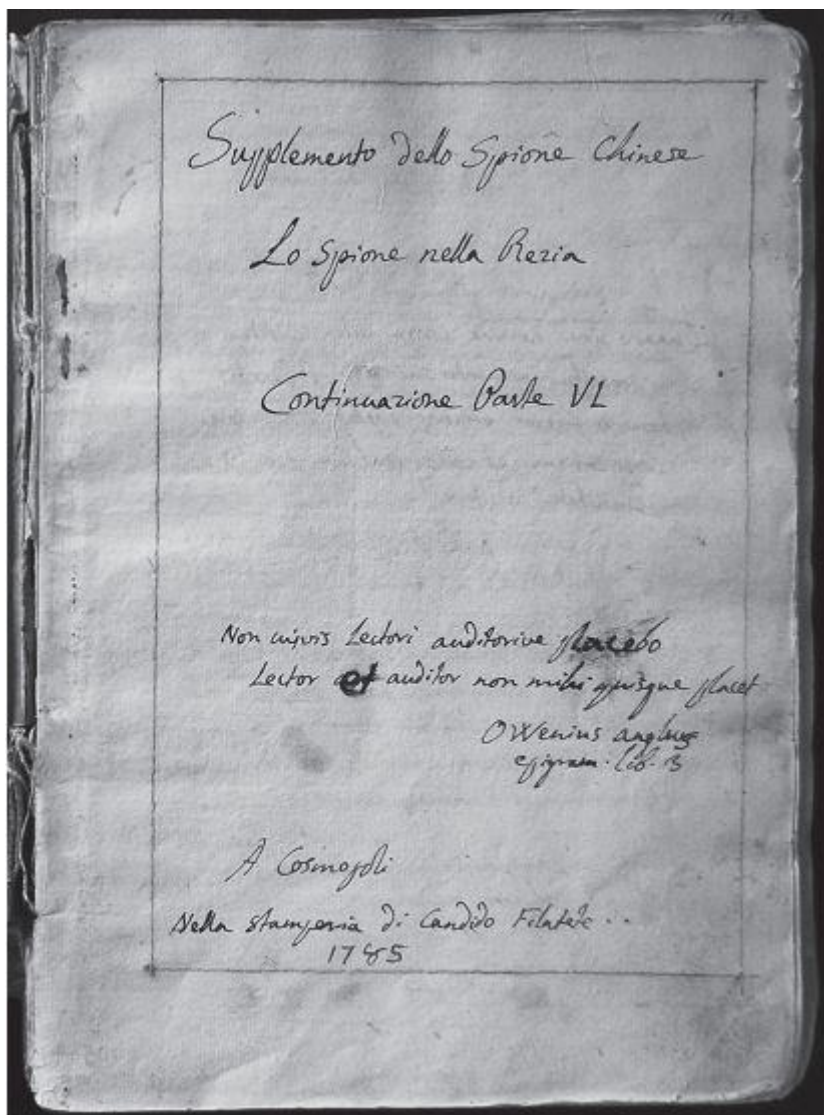 Supplemento dello Spione Chinese
Lo Spione nella Rezia
Continuazione Parte VI
Non cuivis Lectori auditorive placebo
Lector et auditor non mihi quisque placet
OWenius anglus
epigram. lib. 3
A Cosmopoli
Nella stamperia di Candido Filatete..
1785